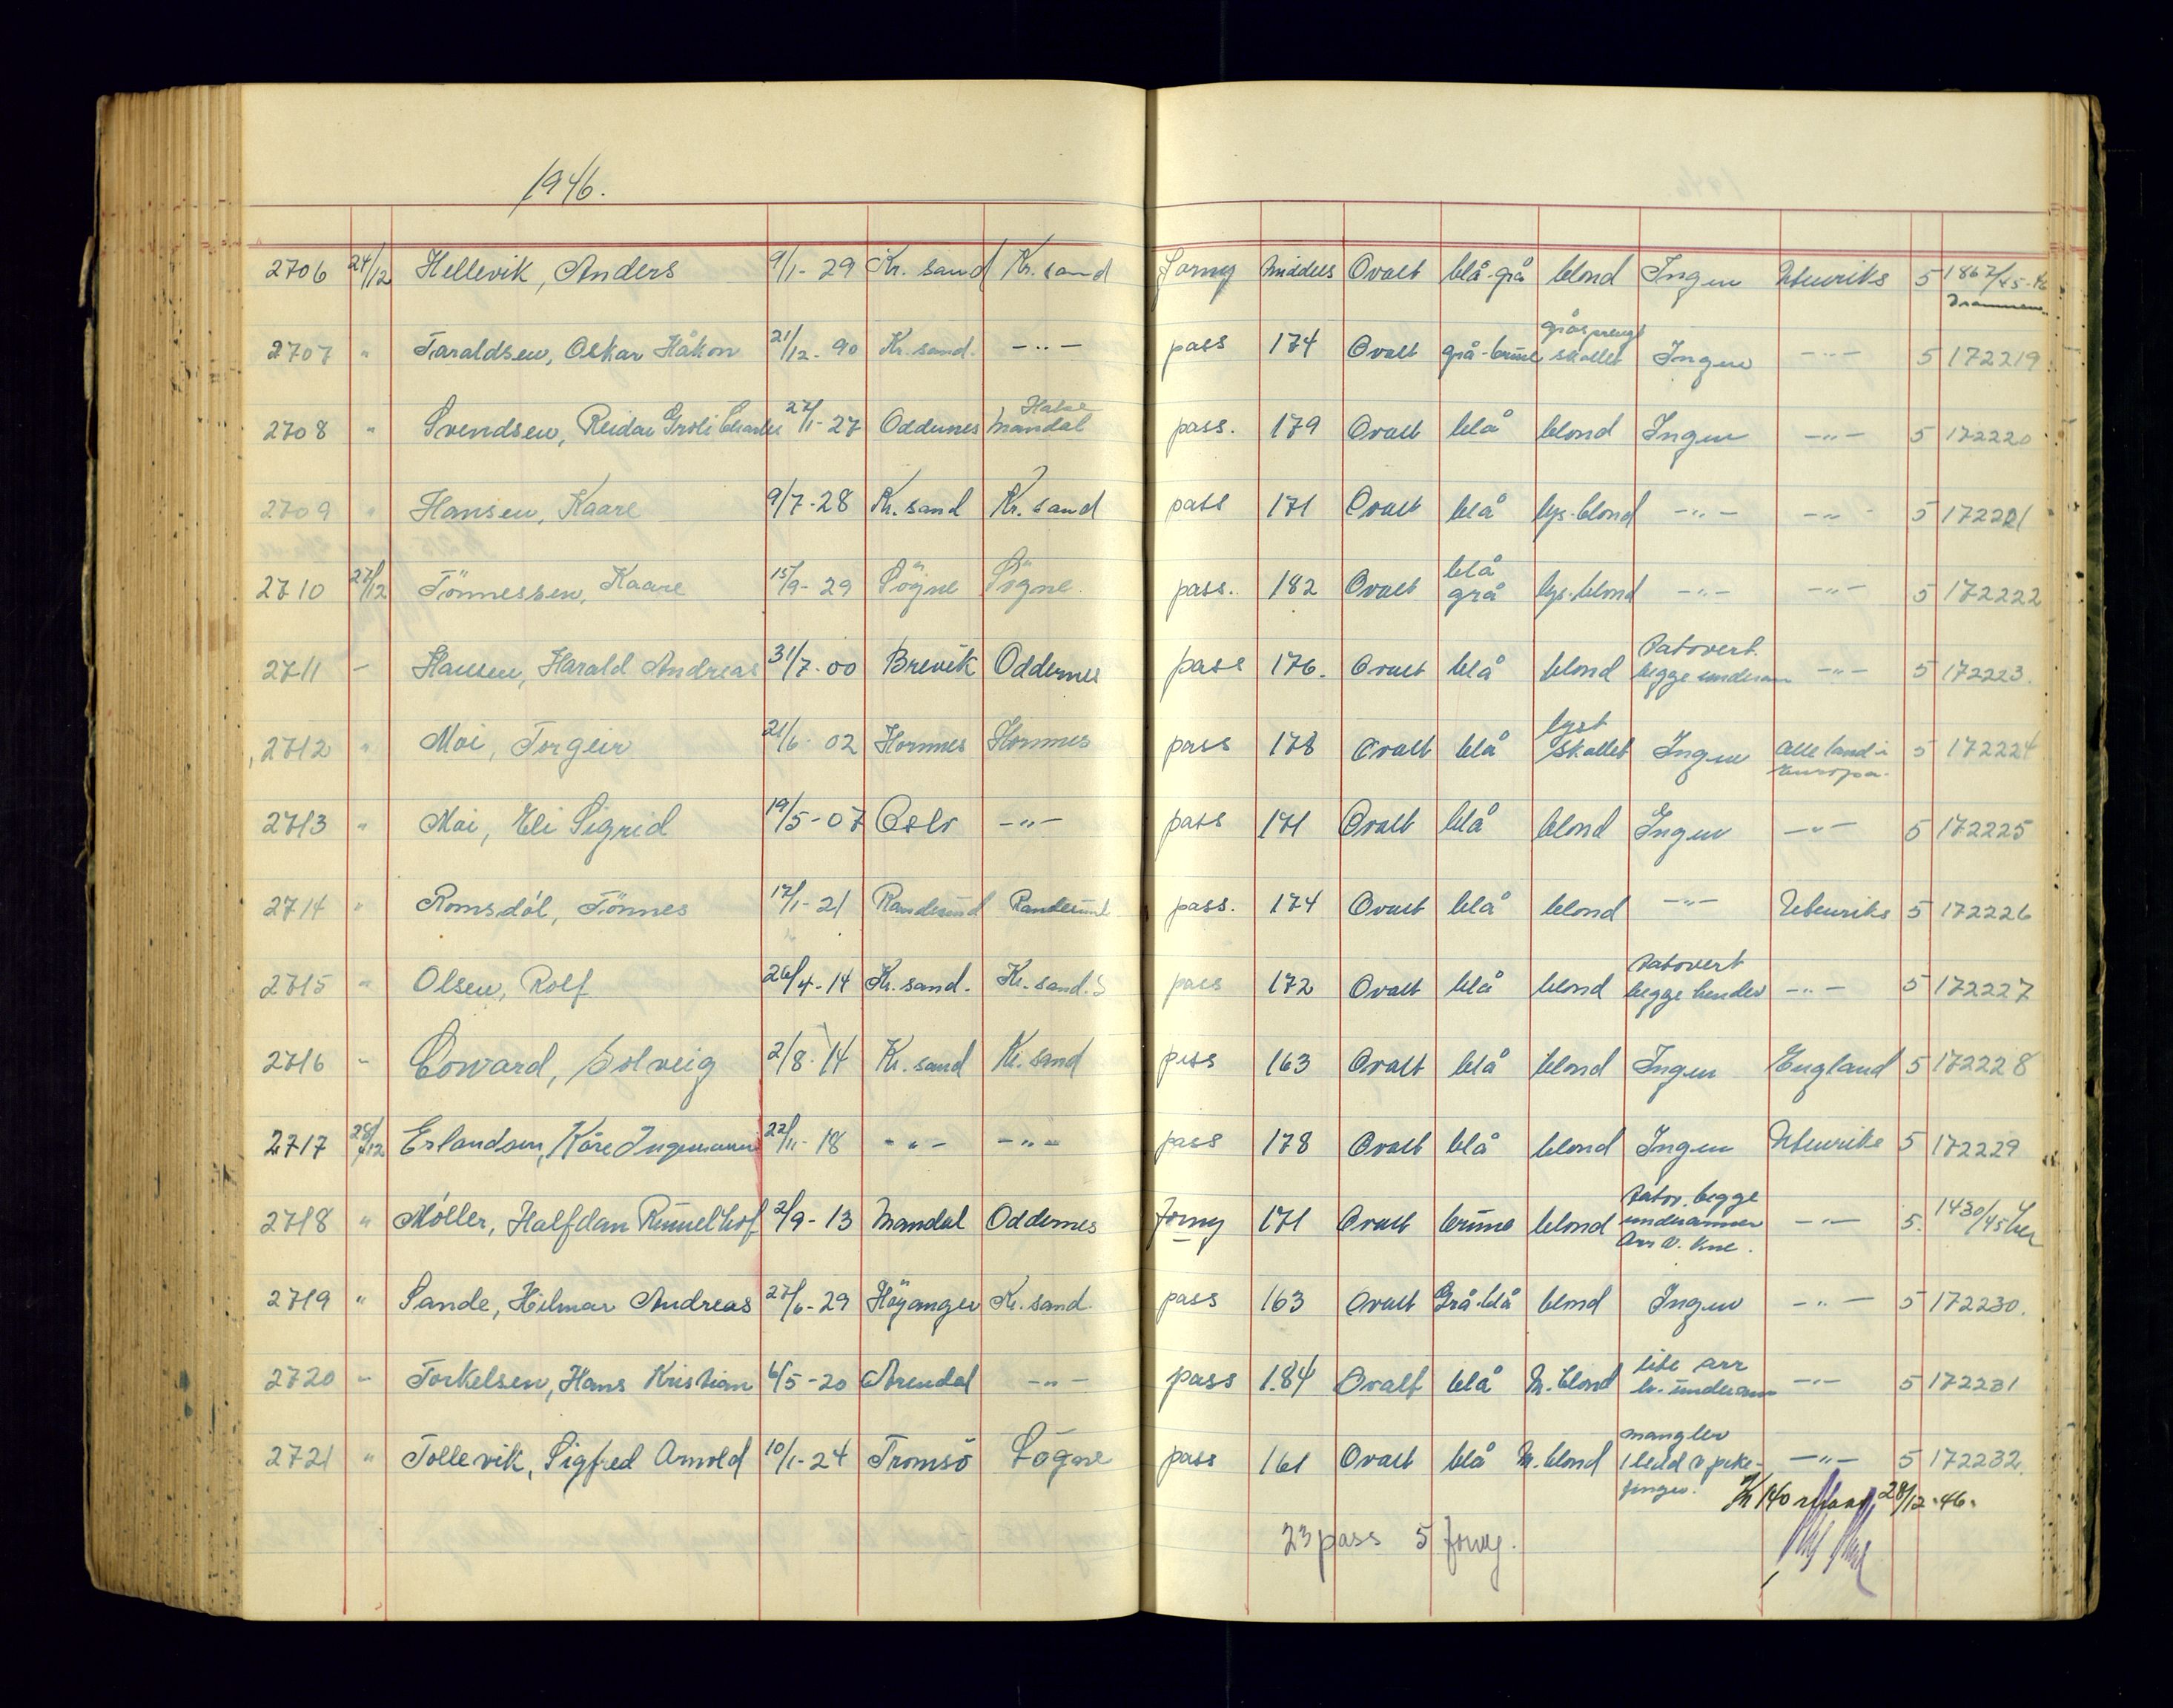 1946.
2706 24/12 Hellevik, Anders 9/1-29 Kr. sand Kr. sand Forny Middels Ovalt blå-grå blond Ingen Utenriks 5 1867/45-46
Drammen.
2707 " Taraldsen, Oskar Håkon 21/12-90 Kr. sand. -"- pass 174 Ovalt grå-brune gråsprengt skallet Ingen -"- 5 172219
2708 " Svendsen, Reidar Groli Charles 27/1-27 Oddernes Halse Mandal pass. 179 Ovalt blå blond Ingen -"- 5 172220
2709 " Hansen, Kaare 9/7-28 Kr. sand Kr. sand pass 171 Ovalt blå lys-blond -"- -"- 5 172221
2710 27/12 Tönnessen, Kaare 15/9-29 Sögne Sögne. pass. 182 Ovalt blå grå lys-blond -"- -"- 5 172222
2711 - Hansen, Harald Andreas 31/7-00 Brevik Oddernes pass 176. Ovalt blå blond Tatovert. begge underarm -"- 5 172223.
2712 " Moi, Torgeir 21/6-02 Hornnes Hornnes pass 178 Ovalt blå lyst skallet Ingen alle land i Europa. 5 172224
2713 " Moi, Eli Sigrid 19/5-07 Oslo -"- pass 171 Ovalt blå blond Ingen -"- 5 172225
2714 " Romsdól, Tönnes 17/1-21 Randesund Randesund pass. 174 Ovalt blå blond -"- Utenriks 5 172226
2715 " Olsen, Rolf 26/4-14 Kr. sand. Kr. sand. S pass 172 Ovalt blå blond tatovert begge hender -"- 5 172227
2716 - Coward, Solveig 2/8-14 Kr. sand Kr. sand pass 163 Ovalt blå blond Ingen England 5 172228
2717 28/12 Erlandsen, Kåre Ingemann 22/11-18 -"- -"- pass 178 Ovalt blå blond Ingen Utenriks 5 172229
2718 " Möller, Halfdan Rummelhof 2/9-13 Mandal Oddernes Forny 171 Ovalt brune blond Tatov. begge underarmer Arr v. kne. -"- 5. 1430/45 her
2719 " Sande, Hilmar Andreas 27/6-29 Höyanger Kr. sand. pass 163 Ovalt Grå-blå blond Ingen -"- 5 172230.
2720 - Torkelsen, Hans Kristian 6/5-20 Arendal -"- pass 184 Ovalt blå M. blond lite arr h. underarm -"- 5 172231
2721 " Tollevik, Sigfred Arnold 10/1-24 Tromsö Sögne pass 161 Ovalt blå M. blond mangler 1 ledd v peke- finger. -"- 5 172232.
Kr 140 28/12-46.
23 pass 5 forny.